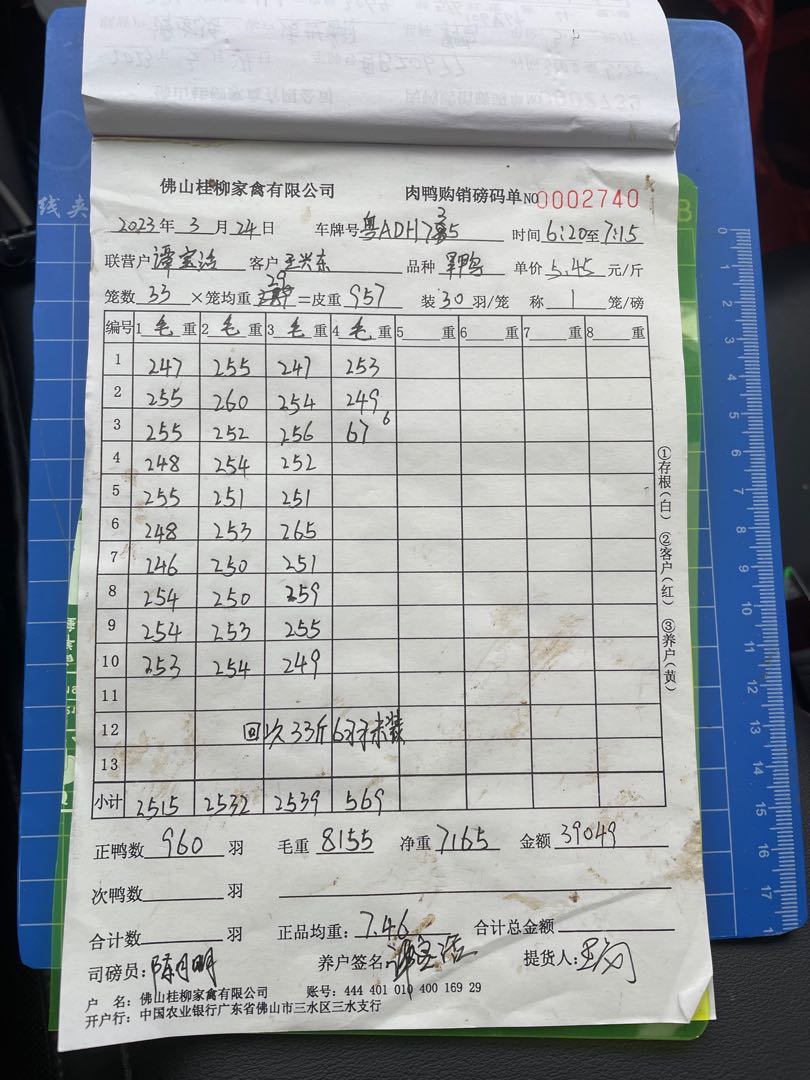 佛山桂柳家禽有限公司 肉鸭购销磅码单NO0002740
2023年3月24日 车牌号粤ADH7335 时间6:20至7:15
联营户谭宝洁 客户王兴东 品种 单价5.45元/斤
笼数33×笼均重29=皮重957 装30羽/笼 称1笼/磅
编号 1毛重 2毛重 3毛重 4毛重 5重 6重 7重 8重
1 247 255 247 253
2 255 260 254 249
3 255 252 256 67 6
4 248 254 252
5 255 251 251
6 248 253 265
7 246 250 251
8 254 250 259
9 254 253 255
10 253 254 249
11
12 回次33斤6羽未装
13
小计 2515 2532 2539 569
正鸭数960羽 毛重8155 净重7165 金额39049
次鸭数羽
合计数羽 正品均重:7.46 合计总金额
司磅员:陈月明 养户签名: 提货人:
户 名:佛山桂柳家禽有限公司 账号:444 401 010 400 169 29
开户行:中国农业银行广东省佛山市三水区三水支行
①存根(白) ②客户(红) ③养户(黄)
线夹
0 1 2 3 4 5 6 7 8 9 10 11 12 13 14 15 16 17